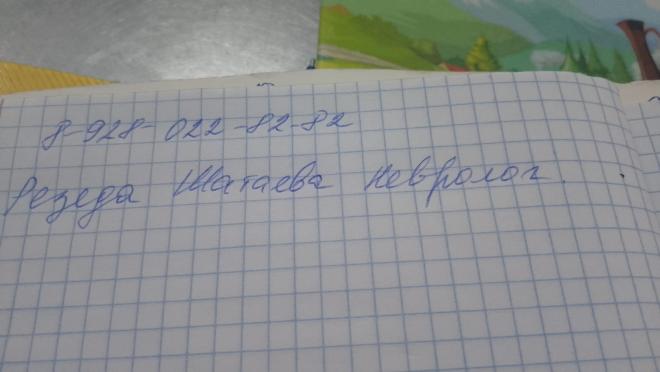 8-928-022-82-82
Резеда Шатаева Невролог.